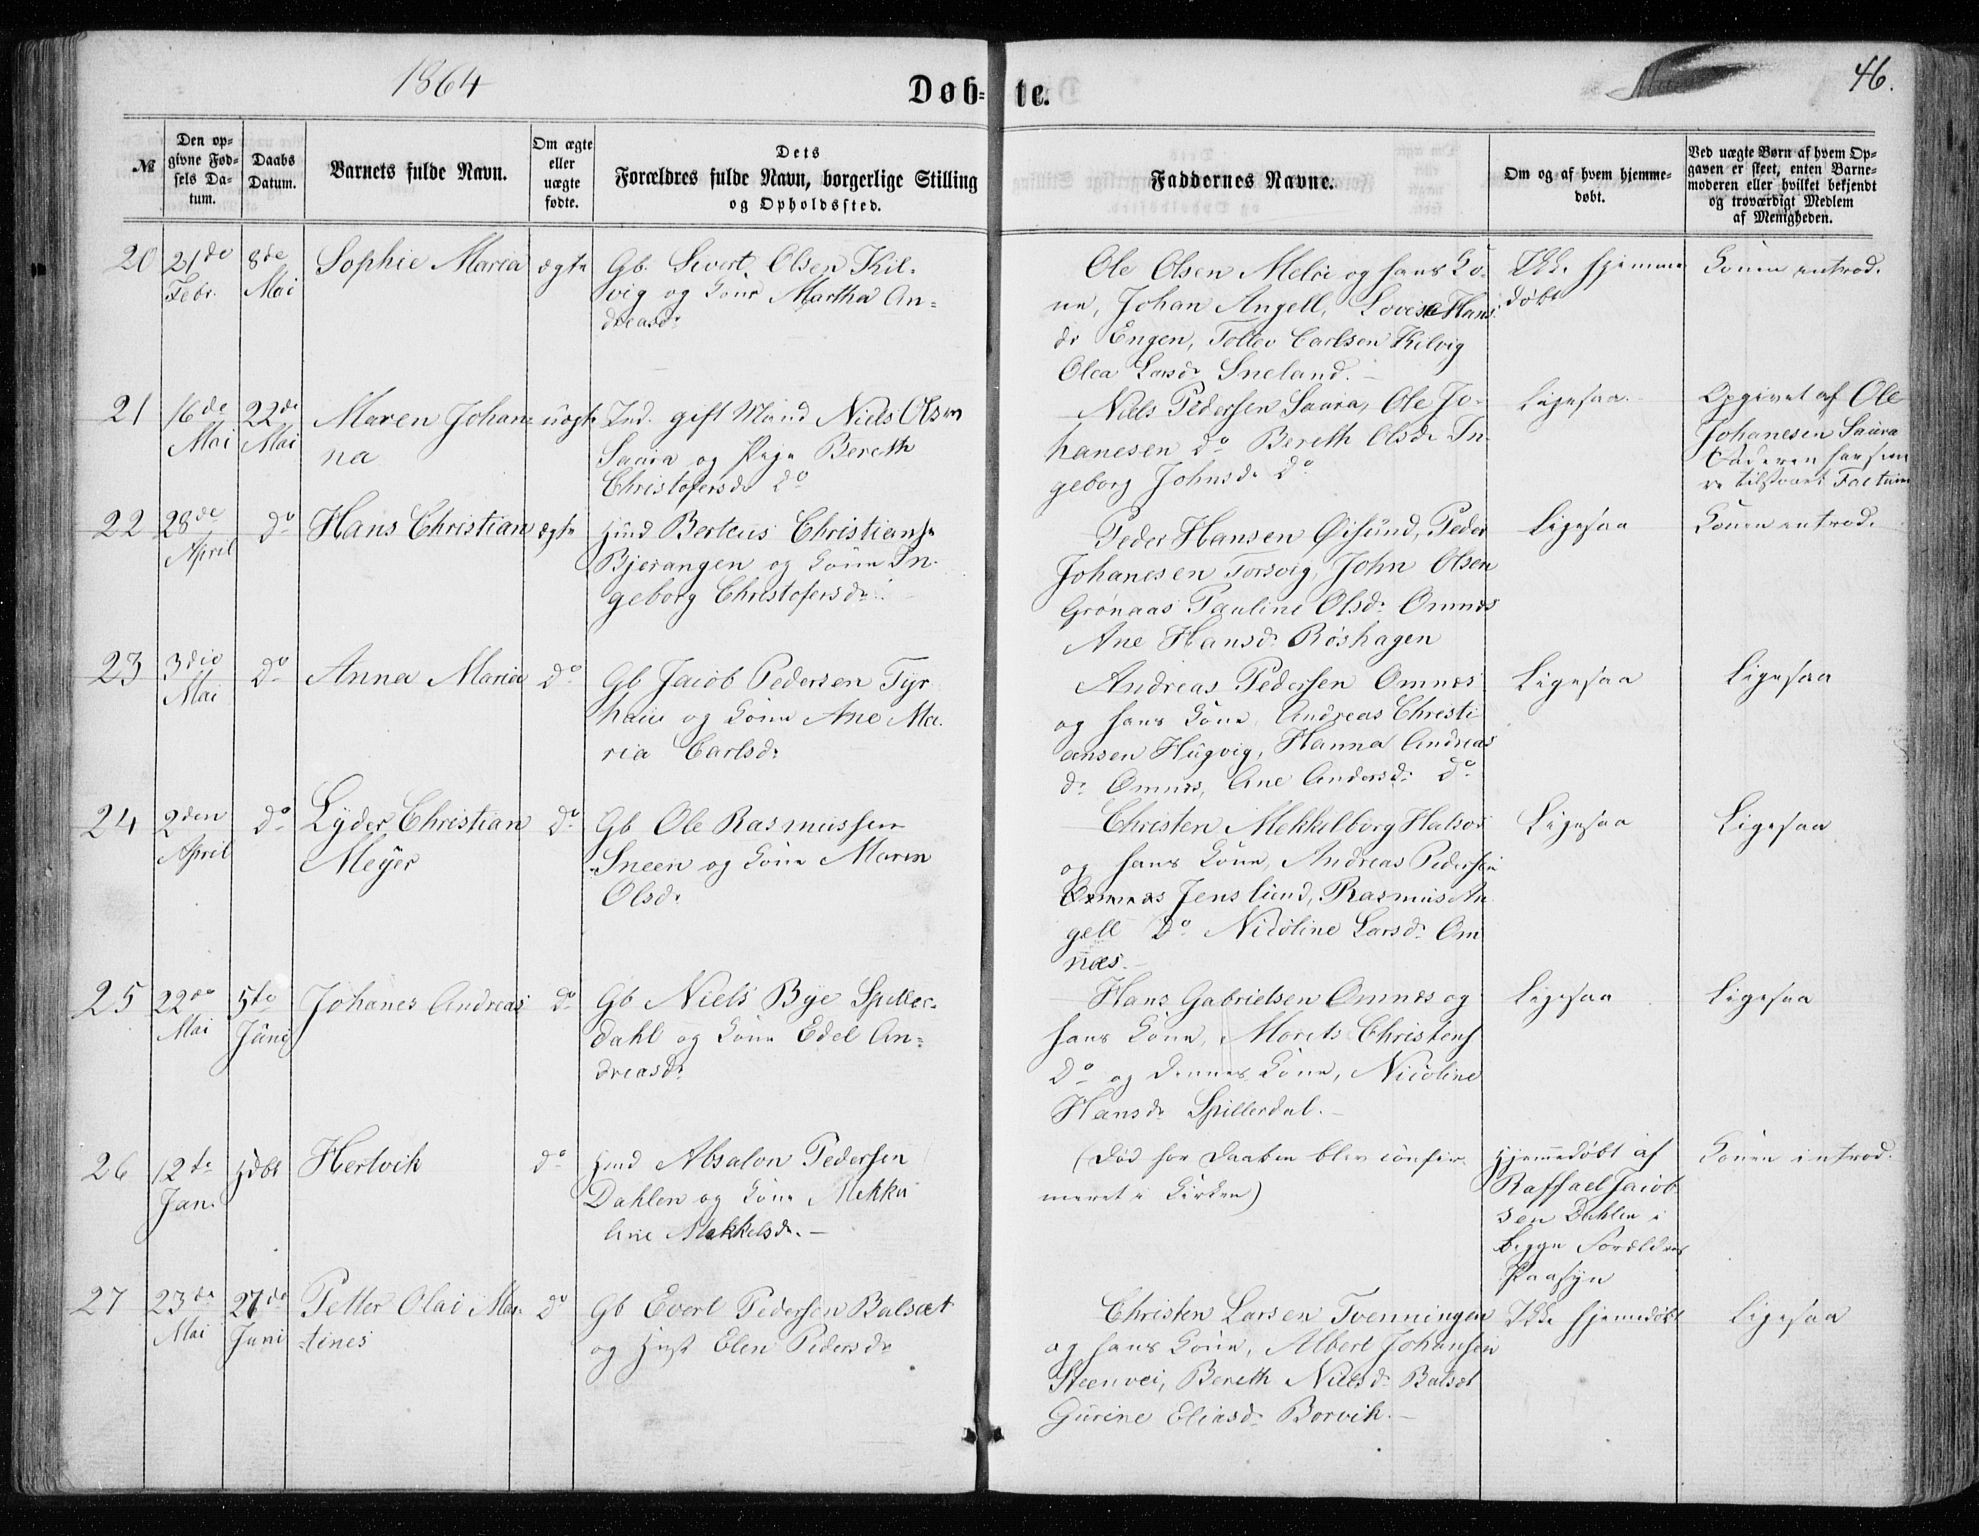 1864
Døb-te.
46.
№
Den op-
givne Fød-
sels Da-
tum.
Daabs
Datum.
Barnets fulde Navn.
Om ægte
eller
uægte
fødte.
Dets
Forældres fulde Navn, borgerlige Stilling
og Opholdssted.
Faddernes Navne.
Om og af hvem hjemme-
døbt.
Ved uægte Børn af hvem Op-
gaven er skeet, enten Barne-
moderen eller hvilket bekjendt
og troværdigt Medlem
af Menigheden.
20
21de
Febr.
8de
Mai
Sophie Maria
ægte
Gb. Sivert Olsen Kil-
vig og Kone Martha An-
dreasdr
Ole Olsen Meløe og hans Ko-
ne, Johan Angell, Lovise Hans
dr Engen, Tollev Carlsen Kilvig
Olea Larsdr Sneland.
Ikke hjemme
døbt
Konen introd.
21
16de
Mai
22de
Mai
Maren Johan-
na
uægte
Ind. gift Mand Niels Olsen
Saura og Pige Bereth
Christofersdr do
Niels Pedersen Saura, Ole Jo-
hanesen do Bereth Olsdr In-
geborg Johnsdr do
Ligesaa.
Opgivet af Ole
Johanesen Saura
tilstaaet Factum
22
28de
April
do
Hans Christian
ægte
Hmd Berteus Christians.
Bjerangen og Kone In-
geborg Christofersdr
Peder Hansen Øisund, Peder
Johanesen Torsvig, John Olsen
Grønaas Pauline Olsdr Omnes
Ane Hansdr Røshagen
Ligesaa
Konen introd.
23
3die
Mai
do
Anna Maria
do
Gb Jacob Pedersen Tyr
haui og Kone Ane Ma-
ria Carlsdr
Andreas Pedersen Omnes
og hans Kone, Andreas Christi
ansen Hugvig, Hanna Andreas
dr Omnes, Ane Andersdr do
Ligesaa
Ligesaa
24
2den
April
do
Lyder Christian
Meyer
do
Gb Ole Rasmussen
Sneen og Kone Maren
Olsdr
Christen Mekkelborg Halsos
og hans Kone, Andreas Pedersen
Omnes Jens lund, Rasmus An
gell do Nicoline Larsdr Om
næs.
Ligesaa
Ligesaa
25
22de
Mai
5te
Juni
Johanes Andreas
do
Gb Niels Bye Spiller-
dahl og Kone Edel An-
dreasdr
Hans Gabrielsen Omnes og
hans Kone, Morets Christens
do og dennes Kone, Nicoline
Hansdr Spillerdal.
Ligesaa
Ligesaa
26
12te
Jan.
Hdbt
Hertvik
do
Hmd Absalon Pedersen
Dahlen og Kone Mekka
line Mekkelsdr.
(død før Daaben blev confir-
meret i Kirken)
Hjemmedøbt af
Raffael Jacob
sen Dahlen i
begge Forældres
Paasyn
Konen introd.
27
23de
Mai
27de
Juni
Petter Olai Mar-
tines
do
Gb Evert Pedersen Balsæt
og Hust Elen Pedersdr
Christen Larsen Tvenningen
og hans Kone, Albert Johansen
Steenvei, Bereth Nielsdr Balset
Gurine Eliasdr Borvik.
Ikke hjemmedøbt
Ligesaa